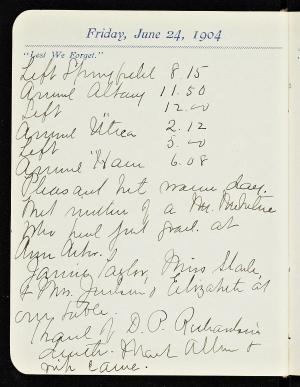 Friday, June 24, 1904
"Lest We Forget."
Left Springfield 8.15
Arrive Albany 11.50
Left 12.00
Arrive Utica 2.12
Left 5.00
Arrive Ham 6.08
Pleasant but warm day.
Met mother of a Mr.
who had just grad. at
Ann Arbor.
Fannie Taylor, Miss Slade,
& Mrs. Judson & Elizabeth at
our table.
Heard of D. P. Richardson's
death. that Allen &
wife came.